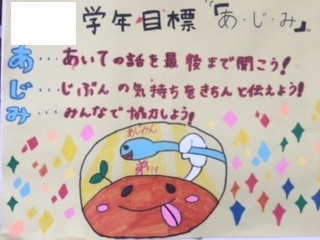 学年目標「あ・じ・み」
あ…あいての話を最後まで聞こう!
じ…じぶんの気持ちをきちんと伝えよう!
み…みんなで協力しよう!
あじみん